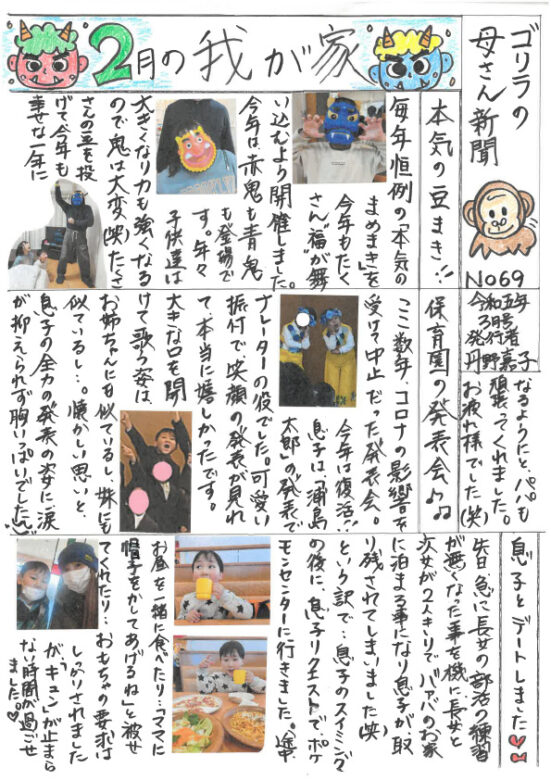 2月の我が家
ゴリラの
母さん新聞
No69
令和五年
3月号
発行者
丹野嘉子
本気の豆まき!!
毎年恒例の「本気の
まめまき」を
今年もたく
さん“福”が舞
い込むよう開催しました。
今年は赤鬼も青鬼
も登場で
す。年々
子供達は
大きくなり力も強くなる
ので鬼は大変(笑)たく
さんの豆を投
げて今年も
幸せな一年に
なるようにと、パパも
頑張ってくれました。
お疲れ様でした(笑)
保育園の発表会♪♪
ここ数年、コロナの影響を
受けて中止だった発表会。
今年は復活!!
息子は、「浦島
太郎」の発表で
ナレーターの役でした。可愛い
振付で笑顔の発表が見れ
て、本当に嬉しかったです。
大きな口を開
けて歌う姿は
お姉ちゃんにも似ているし、妹にも
似ているし…。懐かしい思いと、
息子の全力の発表の姿に涙
が抑えられず胸いっぱいでした
息子とデートしました♥♥
先日、急に長女の部活の練習
が無くなった事を機に、長女と
次女が2人きりで、バァバのお家
に泊まる事になり息子が、取
り残されてしまいました(笑)
という訳で…息子のスイミング
の後に、息子リクエストで、ポケ
モンセンターに行きました。途中、
お昼を一緒に食べたり…「ママに
帽子をかしてあげるね」と被せ
てくれたり…おもちゃの要求は
しっかりされました
が、“キュン”が止まら
ない時間が過ごせ
ました。♥